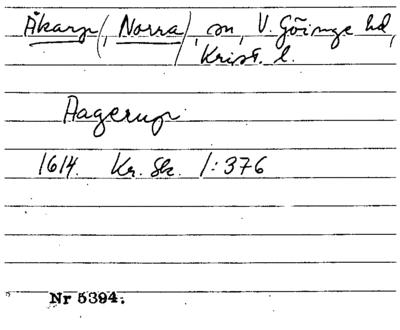 Åkarp (, Norra), sn, V. Göinge hd,
Krist. l.
Aagerup
1614. Kr. Sk. 1:376
Nr 5394.